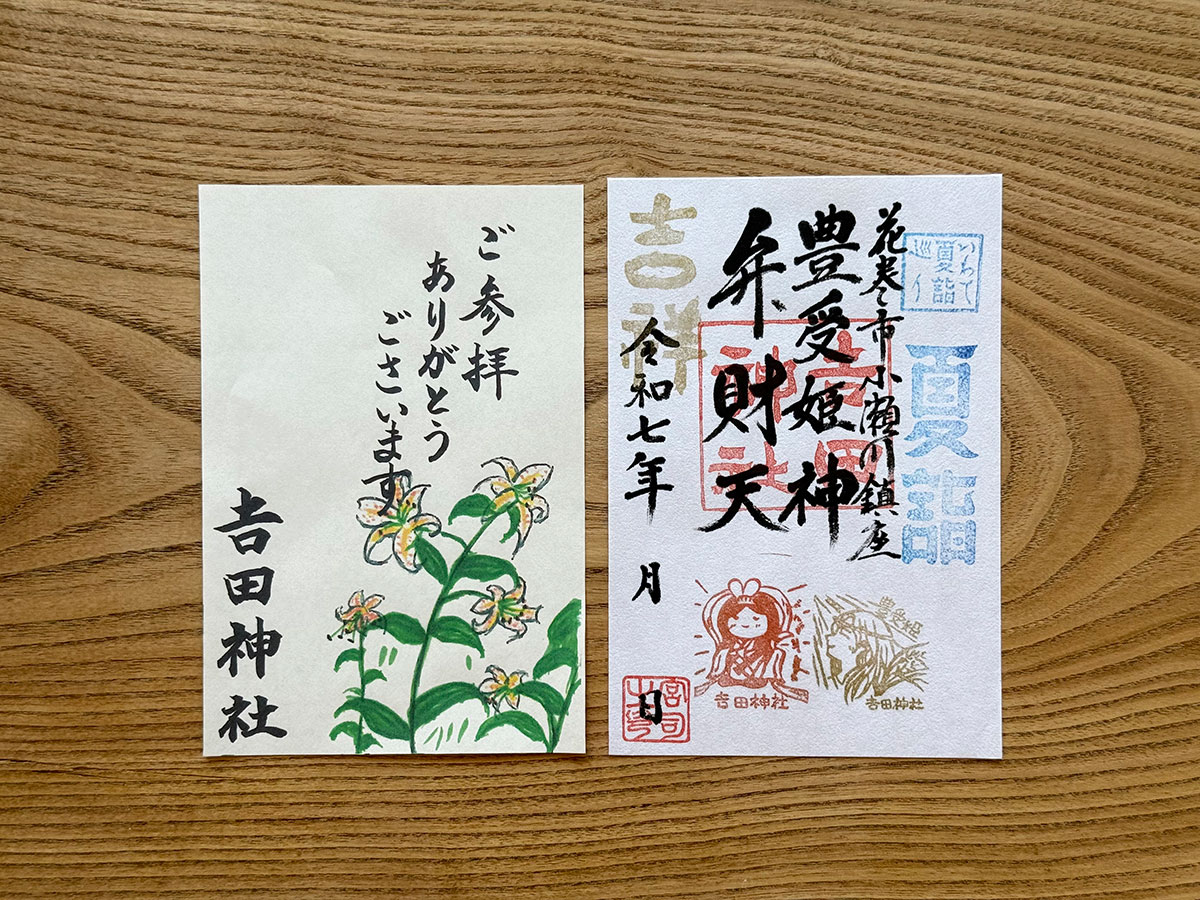 ご参拝
ありがとう
ごさいます
𠮷田神社
いわて
夏詣
巡り
夏詣
花巻市小瀬川鎮座
豊受姫神
弁財天
吉田
神社
吉祥
令和七年 月 日
𠮷田神社
豊受姫
𠮷田神社
宮司